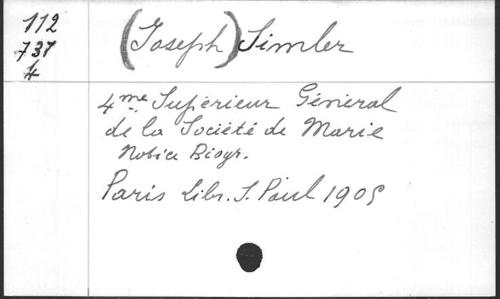 112
737
4
(Joseph) Simler
4me Supérieur Général
de la Société de Marie
Notice Biogr.
Paris Libr. S. Paul 1905